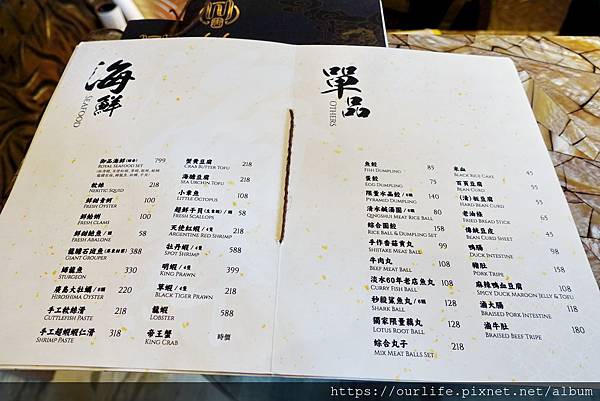 海鮮
SEAFOOD
御品海鮮(綜合) 799
ROYAL SEAFOOD SET
軟絲 218
NERITIC SQUID
鮮甜蚵 100
FRESH OYSTER
鮮蛤蜊 100
FRESH CLAMS
鮮甜鮑魚/顆 58
FRESH ABALONE
龍膽石斑魚 388
GIANT GROUPER
鱘龍魚 330
STURGEON
廣島大牡蠣/6顆 220
HIROSHIMA OYSTER
手工軟絲滑 128
CUTTLEFISH PASTE
手工超蝦蝦仁滑 318
SHRIMP PASTE
蟹黃豆腐 218
CRAB BUTTER TOFU
海膽豆腐 218
SEA URCHIN TOFU
小章魚 148
LITTLE OCTOPUS
超鮮干貝 58
FRESH SCALLOPS
天使紅蝦/4隻 218
ARGENTINE RED SHRIMP
牡丹蝦/4隻 588
SPOT SHRIMP
明蝦/4隻 399
KING PRAWN
草蝦/4隻 218
BLACK TIGER PRAWN
龍蝦 588
LOBSTER
帝王蟹 時價
KING CRAB
單品
OTHERS
魚餃 85
FISH DUMPLING
蛋餃 75
EGG DUMPLING
限量水晶餃/6顆 140
PYRAMID DUMPLING
清水貓湯圓/6顆 80
QINGSHUI MEAT RICE BALL
綜合圓餃 158
RICE BALL & DUMPLING SET
手作香菇貢丸 98
SHIITAKE MEAT BALL
牛肉丸 108
BEEF MEAT BALL
淡水60年老店魚丸 108
CURRY FISH BALL
秒殺鯊魚丸/6顆 108
SHARK BALL
獨家限量藕丸 138
LOTUS ROOT BALL
綜合丸子 218
MIX MEAT BALLS SET
米血 45
BLACK RICE CAKE
百頁豆腐 55
BEAN CURD
(凍)板豆腐 55
HARD BEAN CURD
老油條 55
FRIED BREAD STICK
傳統豆皮 95
BEAN CURD SHEET
鴨腸 108
DUCK INTESTINE
豬肚 158
PORK TRIPE
麻辣鴨血豆腐 108
SPICY DUCK MAROON JELLY & TOFU
滷大腸 118
BRAISED PORK INTESTINE
滷牛肚 180
BRAISED BEEF TRIPE
https://ourlife.pixnet.net/album